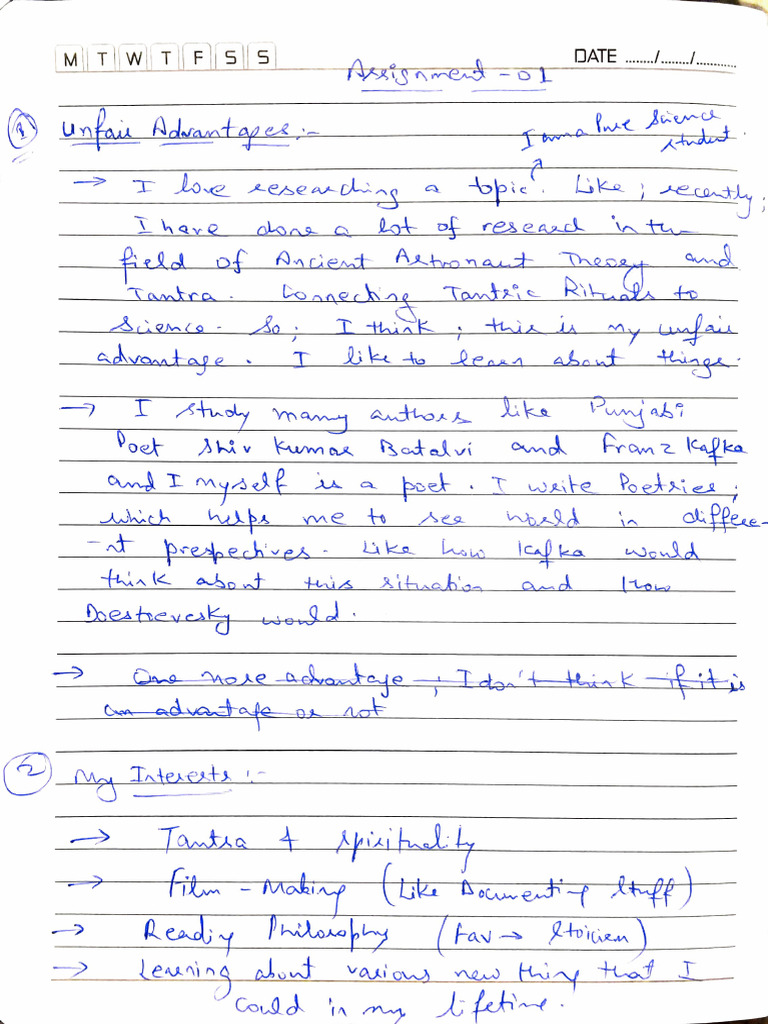 M T W T F S S DATE ......../......../...........
Assignment - 01
1 Unfair Advantages :-
I am a Pure Science
student.
→ I love researching a topic. Like ; recently ;
I have done a lot of researd in the
field of Ancient Astronaut Theory and
Tantra. Connecting Tantric Rituals to
Science. So ; I think ; this is my unfair
advantage. I like to learn about things.
→ I study many authors like Punjabi
Poet Shiv Kumar Batalvi and Franz Kafka
and I myself is a poet. I write Poetries ;
which helps me to see world in differe-
-nt prespectives. Like how Kafka would
think about this situation and How
Doestoevesky would.
→ One more advantage ; I don't think if it is
an advantage or not
2 My Interests :-
→ Tantra & Spirituality
→ Film - Making (Like Documenting Stuff)
→ Reading Philosophy (Fav → Stoicism)
→ Learning about various new thing that I
could in my lifetime.